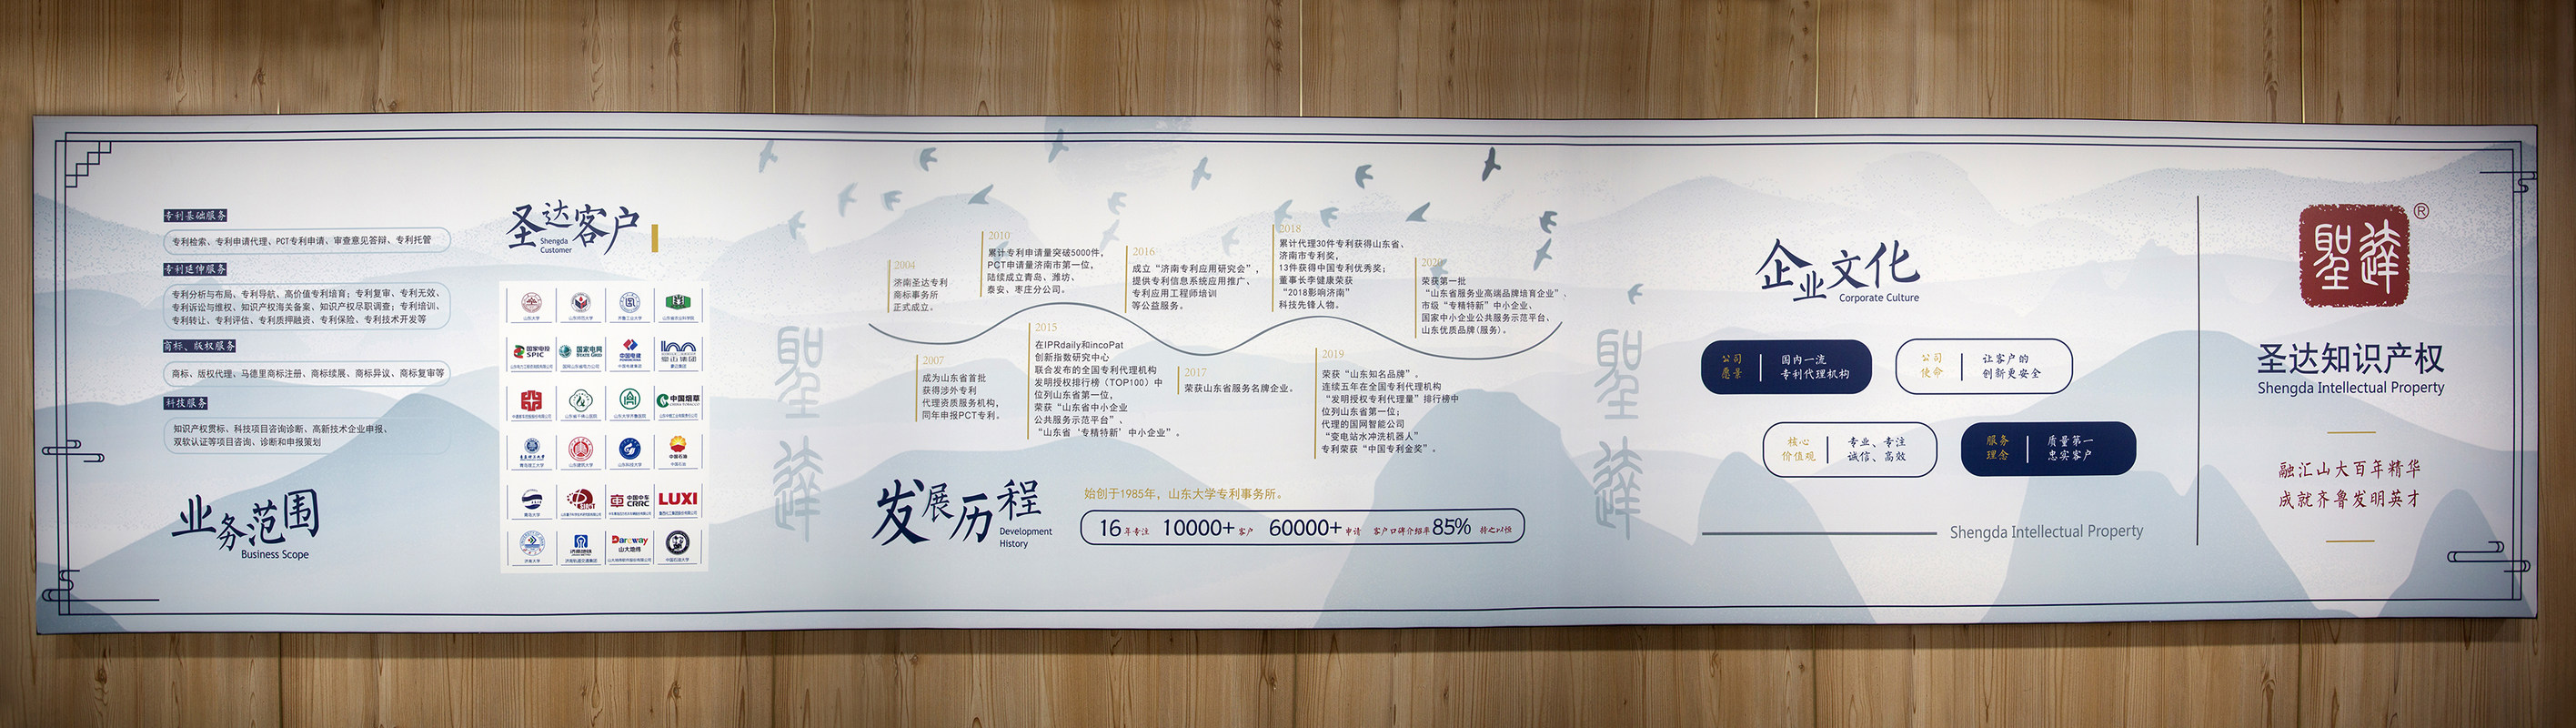 专利基础服务
专利检索、专利申请代理、PCT专利申请、审查意见答辩、专利托管
专利延伸服务
专利分析与布局、专利导航、高价值专利培育；专利复审、专利无效、
专利诉讼与维权、知识产权海关备案、知识产权尽职调查；专利培训、
专利转让、专利评估、专利质押融资、专利保险、专利技术开发等
商标、版权服务
商标、版权代理、马德里商标注册、商标续展、商标异议、商标复审等
科技服务
知识产权贯标、科技项目咨询诊断、高新技术企业申报、
双软认证等项目咨询、诊断和申报策划
业务范围
Business Scope
圣达客户
Shengda
Customer
山东大学
山东师范大学
齐鲁工业大学
山东省农业科学院
国家电投
SPIC
国家电网
STATE GRID
中国电建
POWERCHINA
豪迈集团
山东省千佛山医院
山东大学齐鲁医院
中国烟草
CHINA TOBACCO
青岛理工大学
山东建筑大学
山东科技大学
中国石油
中国石油
青岛大学
中国中车
CRRC
LUXI
济南大学
济南地铁
济南轨道交通集团
Dareway
山大地纬
中国石油大学
聖達
2004
济南圣达专利
商标事务所
正式成立。
2007
成为山东省首批
获得涉外专利
代理资质服务机构，
同年申报PCT专利。
2010
累计专利申请量突破5000件，
PCT申请量济南市第一位，
陆续成立青岛、潍坊、
泰安、枣庄分公司。
2015
在IPRdaily和incoPat
创新指数研究中心
联合发布的全国专利代理机构
发明授权排行榜（TOP100）中
位列山东省第一位，
荣获“山东省中小企业
公共服务示范平台”、
“山东省‘专精特新’中小企业”。
2016
成立“济南专利应用研究会”，
提供专利信息系统应用推广、
专利应用工程师培训
等公益服务。
2017
荣获山东省服务名牌企业。
2018
累计代理30件专利获得山东省、
济南市专利奖，
13件获得中国专利优秀奖；
董事长李健康荣获
“2018影响济南”
科技先锋人物。
2019
荣获“山东知名品牌”。
连续五年在全国专利代理机构
“发明授权专利代理量”排行榜中
位列山东省第一位；
代理的国网智能公司
“变电站水冲洗机器人”
专利荣获“中国专利金奖”。
2020
荣获第一批
“山东省服务业高端品牌培育企业”、
市级“专精特新”中小企业、
国家中小企业公共服务示范平台、
山东优质品牌(服务)。
发展历程
Development
History
始创于1985年，山东大学专利事务所。
16年专注 10000+客户 60000+申请 客户口碑介绍率85% 持之以恒
聖達
企业文化
Corporate Culture
公司愿景 国内一流
专利代理机构
公司使命 让客户的
创新更安全
核心价值观 专业、专注
诚信、高效
服务理念 质量第一
忠实客户
Shengda Intellectual Property
聖達®
圣达知识产权
Shengda Intellectual Property
融汇山大百年精华
成就齐鲁发明英才